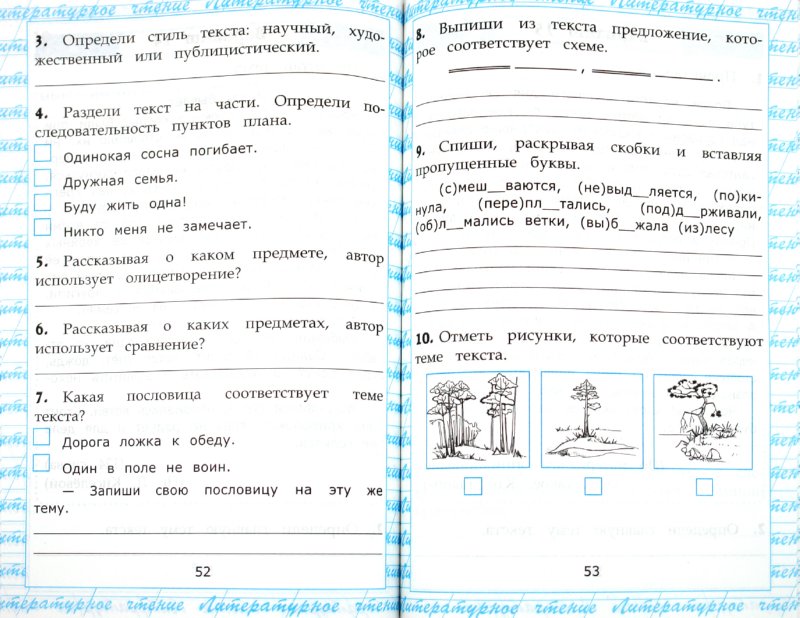 Литературное чтение Литературное чтение
3. Определи стиль текста: научный, худо-
жественный или публицистический.
4. Раздели текст на части. Определи по-
следовательность пунктов плана.
Одинокая сосна погибает.
Дружная семья.
Буду жить одна!
Никто меня не замечает.
5. Рассказывая о каком предмете, автор
использует олицетворение?
6. Рассказывая о каких предметах, автор
использует сравнение?
7. Какая пословица соответствует теме
текста?
Дорога ложка к обеду.
Один в поле не воин.
— Запиши свою пословицу на эту же
тему.
52
Литературное чтение Литературное чтение
8. Выпиши из текста предложение, кото-
рое соответствует схеме.
, .
9. Спиши, раскрывая скобки и вставляя
пропущенные буквы.
(с)меш__ваются, (не)выд__ляется, (по)ки-
нула, (пере)пл__тались, (под)д__рживали,
(об)л__мались ветки, (вы)б__жала (из)лесу
10. Отметь рисунки, которые соответствуют
теме текста.
53
Литературное чтение Литературное чтение